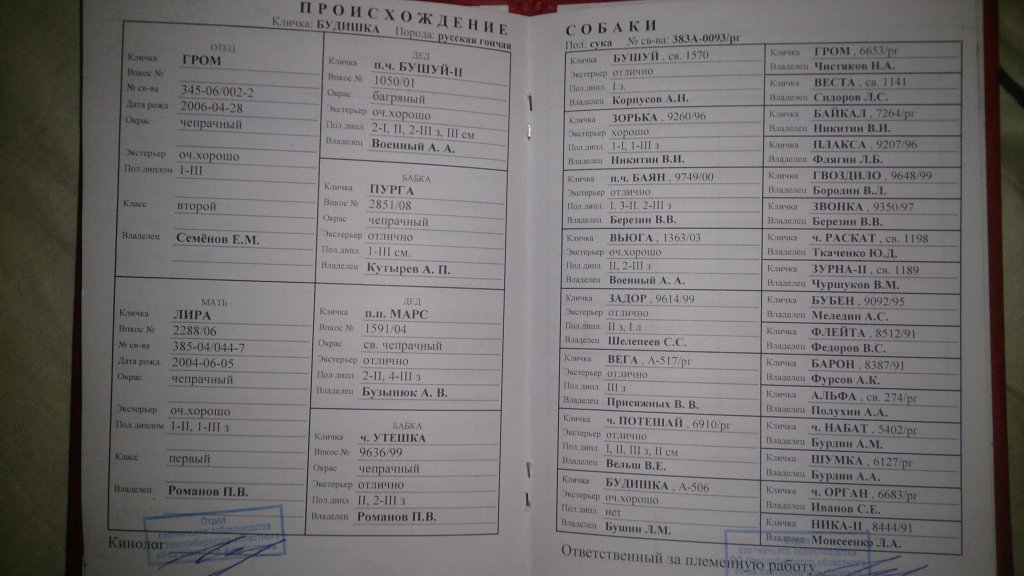 ПРОИСХОЖДЕНИЕ
Кличка: БУДИШКА Порода: русская гончая
ОТЕЦ
Кличка ГРОМ
Впкос №
№ св-ва 345-06/002-2
Дата рожд. 2006-04-28
Окрас чепрачный
Экстерьер оч.хорошо
Пол.диплом 1-III
Класс второй
Владелец Семёнов Е.М.
МАТЬ
Кличка ЛИРА
Впкос № 2288/06
№ св-ва 385-04/044-7
Дата рожд 2004-06-05
Окрас чепрачный
Экстерьер оч.хорошо
Пол.диплом 1-II, 1-III з
Класс первый
Владелец Романов П.В.
ДЕД
Кличка п.ч. БУШУЙ-II
Впкос № 1050/01
Окрас багряный
Экстерьер оч.хорошо
Пол.дипл. 2-I, II, 2-III з, III см
Владелец Военный А. А.
БАБКА
Кличка ПУРГА
Впкос № 2851/08
Окрас чепрачный
Экстерьер отлично
Пол.дипл. 1-III см.
Владелец Кутырев А. П.
ДЕД
Кличка п.п. МАРС
Впкос № 1591/04
Окрас св. чепрачный
Экстерьер отлично
Пол.дипл. 2-II, 4-III з
Владелец Бузынюк А. В.
БАБКА
Кличка ч. УТЕШКА
Впкос № 9636/99
Окрас чепрачный
Экстерьер отлично
Пол.дипл II, 2-III з
Владелец Романов П.В.
Кинолог
Отдел
охотничьего собаководства
Новосибирского областного
СОБАКИ
Пол: сука № св-ва: 383А-0093/рг
Кличка БУШУЙ, св. 1570
Экстерьер отлично
Пол дипл I л.
Владелец Корпусов А.Н.
Кличка ЗОРЬКА, 9260/96
Экстерьер хорошо
Пол дипл. 1-I, 1-III з
Владелец Никитин В.И.
Кличка п.ч. БАЯН, 9749/00
Экстерьер отлично
Пол дипл I, 3-II. 2-III з
Владелец Березин В.В.
Кличка ВЬЮГА, 1363/03
Экстерьер оч.хорошо
Пол дипл II, 2-III з
Владелец Военный А. А.
Кличка ЗАДОР, 9614/99
Экстерьер отлично
Пол.дипл II з, I л
Владелец Шелепеев С.С.
Кличка ВЕГА, А-517/рг
Экстерьер отлично
Пол дипл III з
Владелец Присяжных В. В.
Кличка ч. ПОТЕШАЙ, 6910/рг
Экстерьер отлично
Пол дипл I, II, III з, II см
Владелец Вельш В.Е.
Кличка БУДИШКА, А-506
Экстерьер оч.хорошо
Пол дипл нет
Владелец Бушин Л.М.
Кличка ГРОМ, 6653/рг
Владелец Чистяков Н.А.
Кличка ВЕСТА, св. 1141
Владелец Сидоров Л.С.
Кличка БАЙКАЛ, 7264/рг
Владелец Никитин В.И.
Кличка ПЛАКСА, 9207/96
Владелец Флягин Л.Б.
Кличка ГВОЗДИЛО, 9648/99
Владелец Бородин В.Л.
Кличка ЗВОНКА, 9350/97
Владелец Березин В.В.
Кличка ч. РАСКАТ, св. 1198
Владелец Ткаченко Ю.Д.
Кличка ЗУРНА-II, св. 1189
Владелец Чуршуков В.М.
Кличка БУБЕН, 9092/95
Владелец Меледин А.С.
Кличка ФЛЕЙТА, 8512/91
Владелец Федоров В.С.
Кличка БАРОН, 8387/91
Владелец Фурсов А.К.
Кличка АЛЬФА, св. 274/рг
Владелец Полухин А.А.
Кличка ч. НАБАТ, 5402/рг
Владелец Бурдин А.М.
Кличка ШУМКА, 6127/рг
Владелец Бурдин А.А.
Кличка ч. ОРГАН, 6683/рг
Владелец Иванов С.Е.
Кличка НИКА-II, 8444/91
Владелец Моисеенко Л.А.
Ответственный за племенную работу
Отдел
охотничьего собаководства